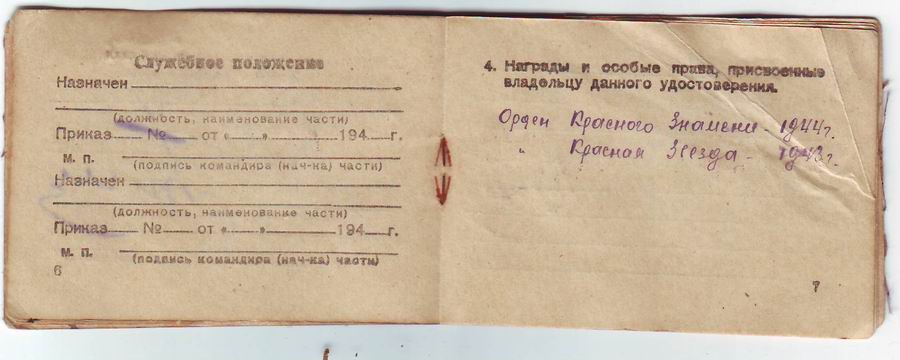 Служебное положение
Назначен
(должность, наименование части)
Приказ № от « » 194 г.
М. П. (подпись командира (нач-ка) части)
Назначен
(должность, наименование части)
Приказ № от « » 194 г.
М. П. (подпись командира (нач-ка) части)
6
4. Награды и особые права, присвоенные
владельцу данного удостоверения.
Орден Красного Знамени - 1944 г.
" Красная Звезда - 1943 г.
7